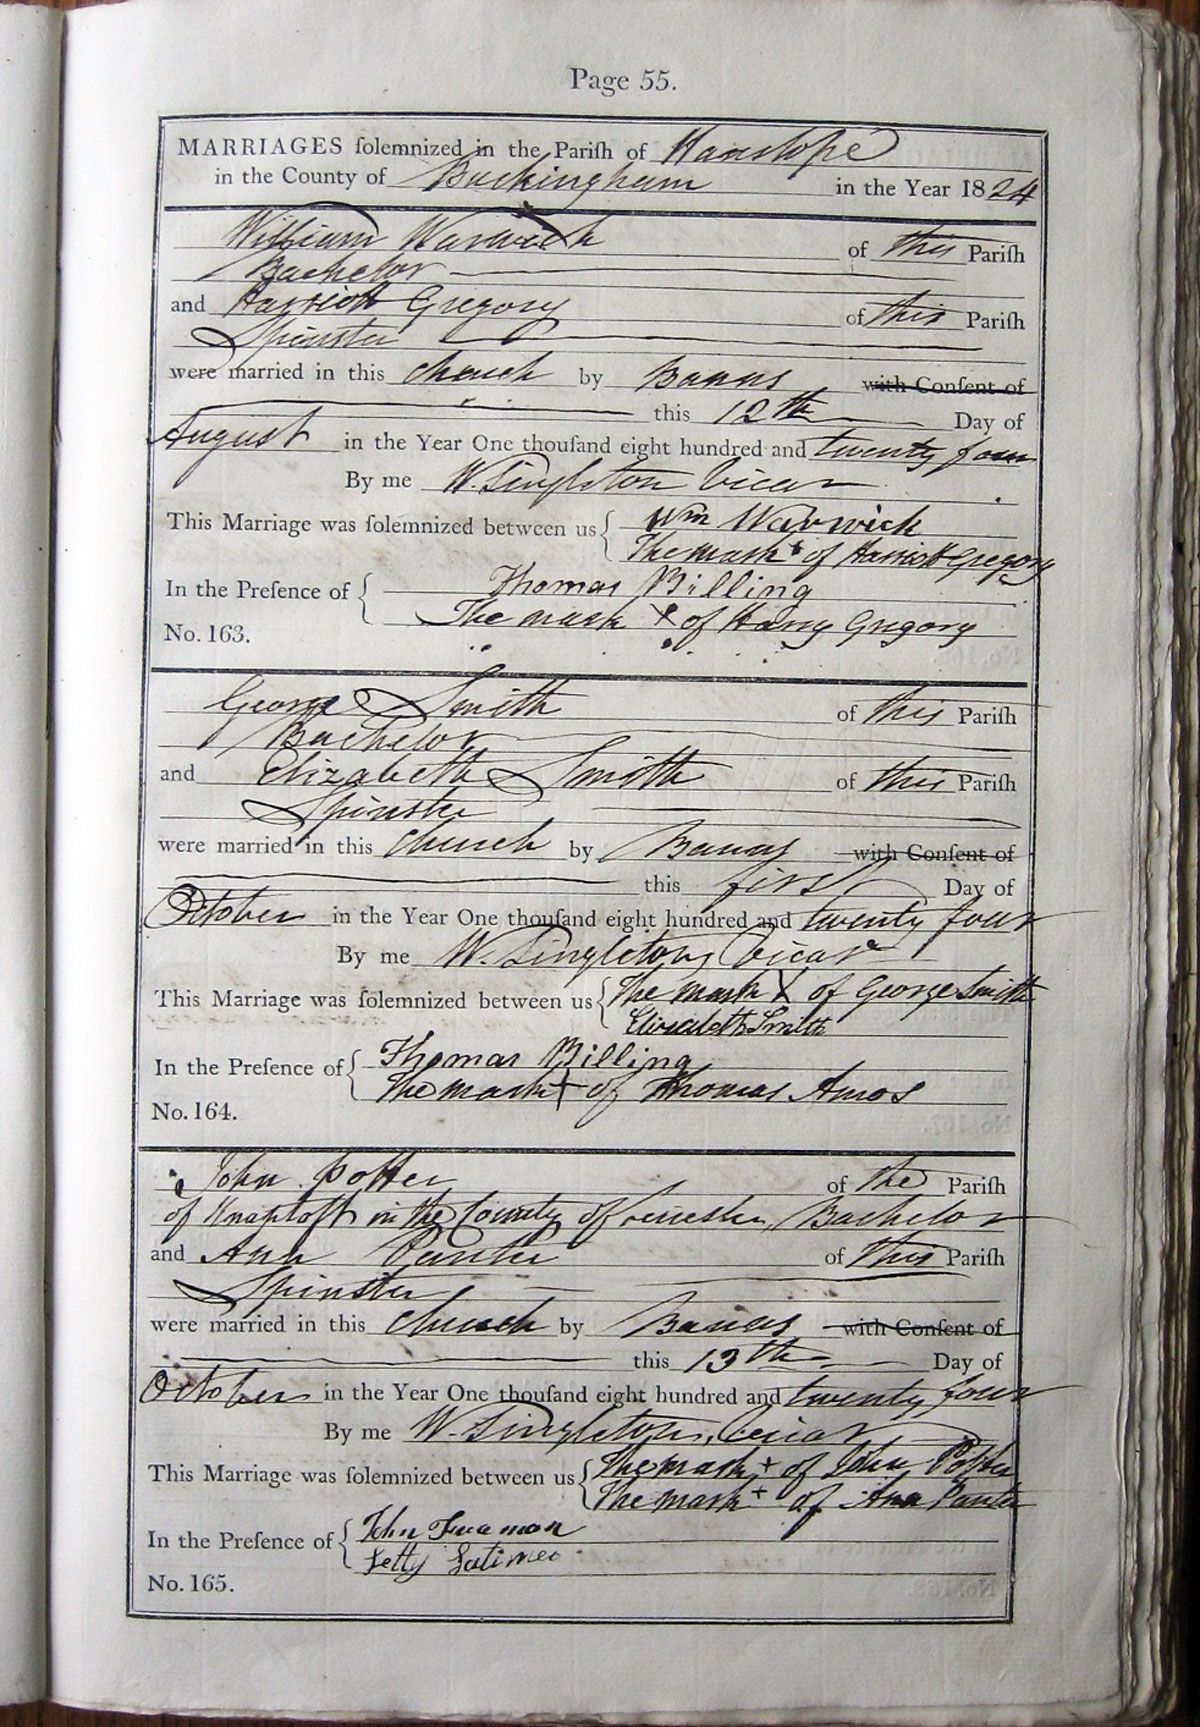 Page 55.
MARRIAGES ſolemnized in the Pariſh of Hanslope
in the County of Buckingham in the Year 1824
William Warwick of this Pariſh
Bachelor
and Harriott Gregory of this Pariſh
Spinster
were married in this church by Banns with Conſent of
this 12th Day of
August in the Year One thouſand eight hundred and twenty four
By me W. Singleton Vicar
This Marriage was ſolemnized between us { Wm Warwick
The mark + of Harriott Gregory
In the Preſence of { Thomas Billing
The mark X of Harry Gregory
No. 163.
George Smith of this Pariſh
Bachelor
and Elizabeth Smith of this Pariſh
Spinster
were married in this church by Banns with Conſent of
this first Day of
October in the Year One thouſand eight hundred and twenty four
By me W. Singleton, Vicar
This Marriage was ſolemnized between us { The mark X of George Smith
Elizabeth Smith
In the Preſence of { Thomas Billing
The mark + of Thomas Amos
No. 164.
John Potter of the Pariſh
of Knaptoft in the County of Leicester, Bachelor
and Ann Panter of this Pariſh
Spinster
were married in this church by Banns with Conſent of
this 13th Day of
October in the Year One thouſand eight hundred and twenty four
By me W. Singleton, Vicar
This Marriage was ſolemnized between us { The mark + of John Potter
The mark + of Ann Panter
In the Preſence of { John Freeman
Letty
No. 165.